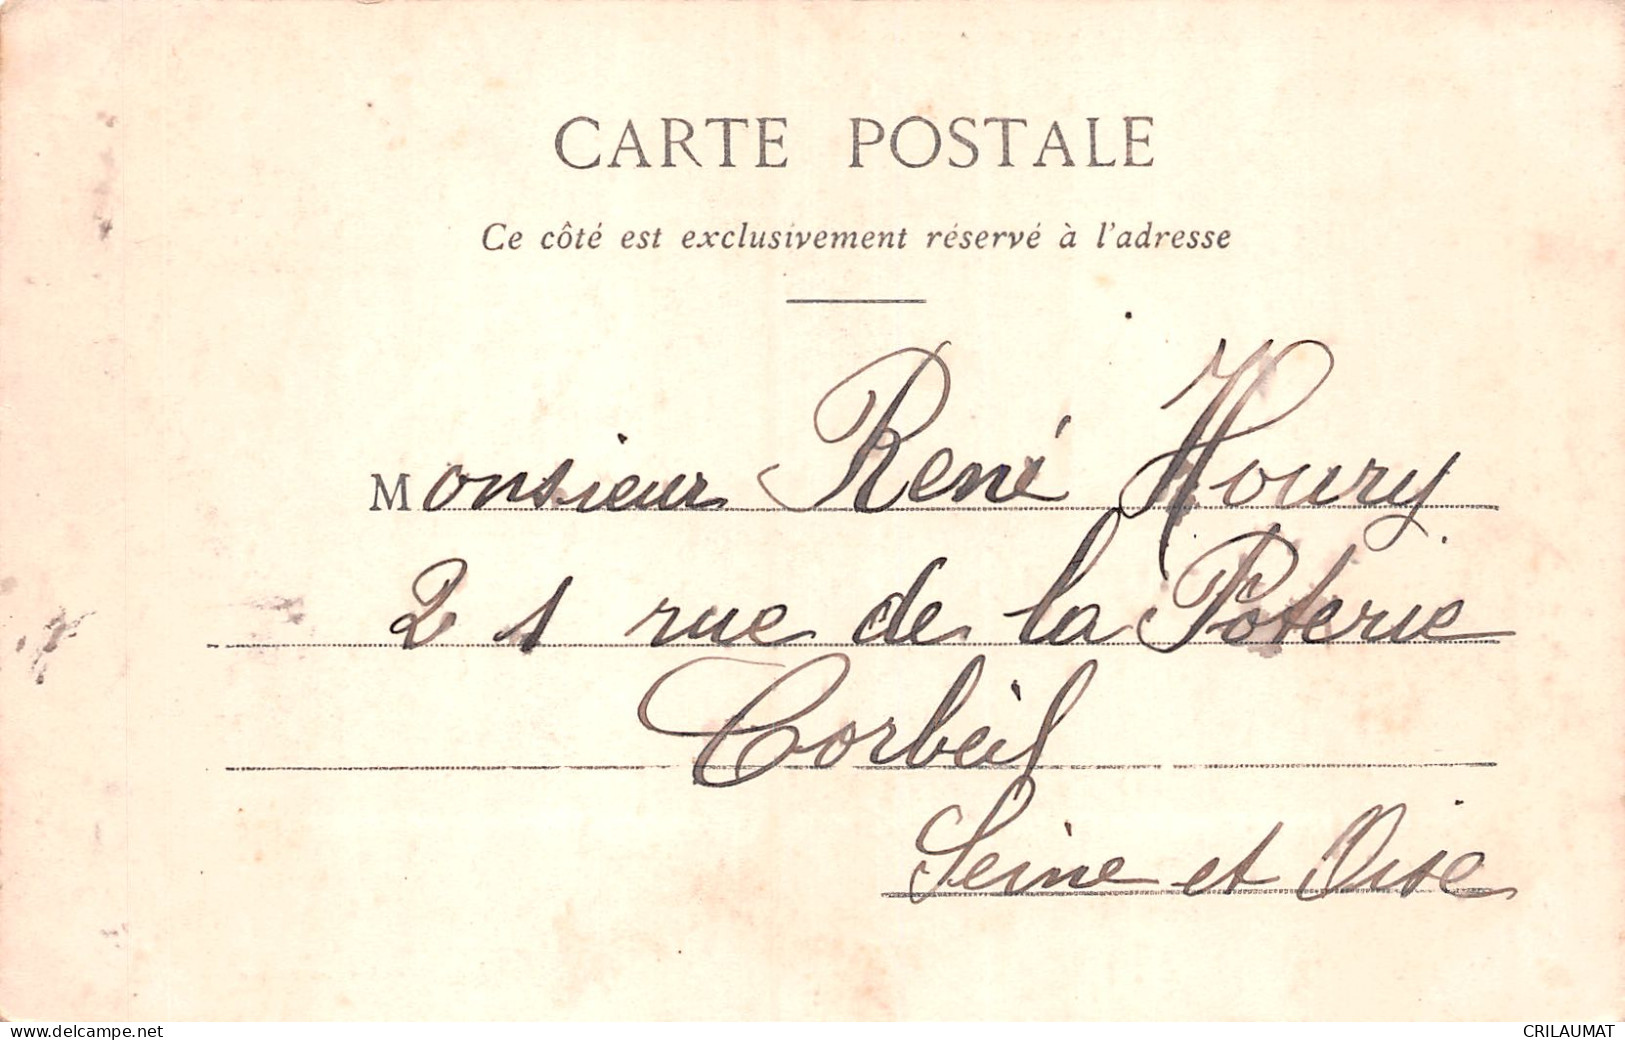 CARTE POSTALE
Ce côté est exclusivement réservé à l'adresse
Monsieur René Houry
21 rue de la Poterie
Corbeil
Seine et Oise
www.delcampe.net
CRILAUMAT